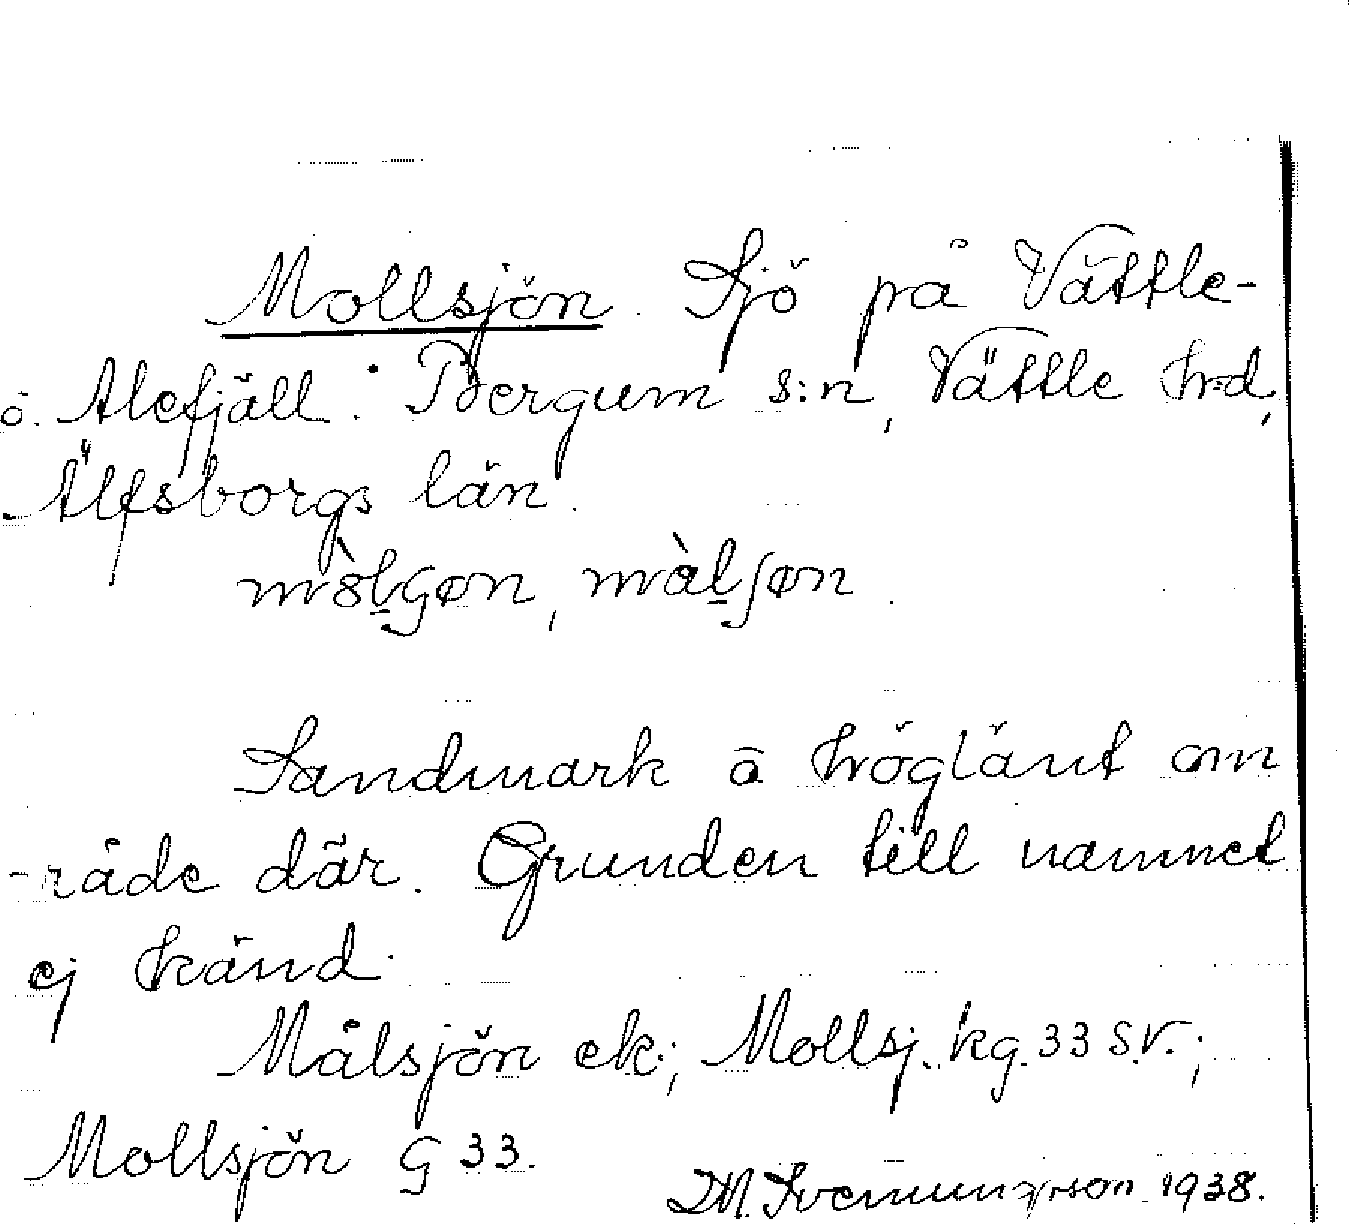 Mollsjön. Sjö på Vättle-
o. Alefjäll. Bergum s:n, Vättle hd,
Älfsborgs län.
Sandmark å högländt om
-råde där. Grunden till namnet
ej känd.
Målsjön ek.; Mollsj. kg. 33 S.V.;
Mollsjön G 33.
1938.